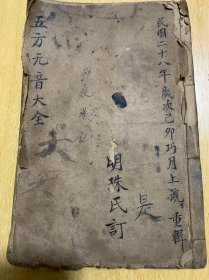 民國二十八年歲次己卯巧月上浣 重輯
是
明珠民訂
五方元音大全